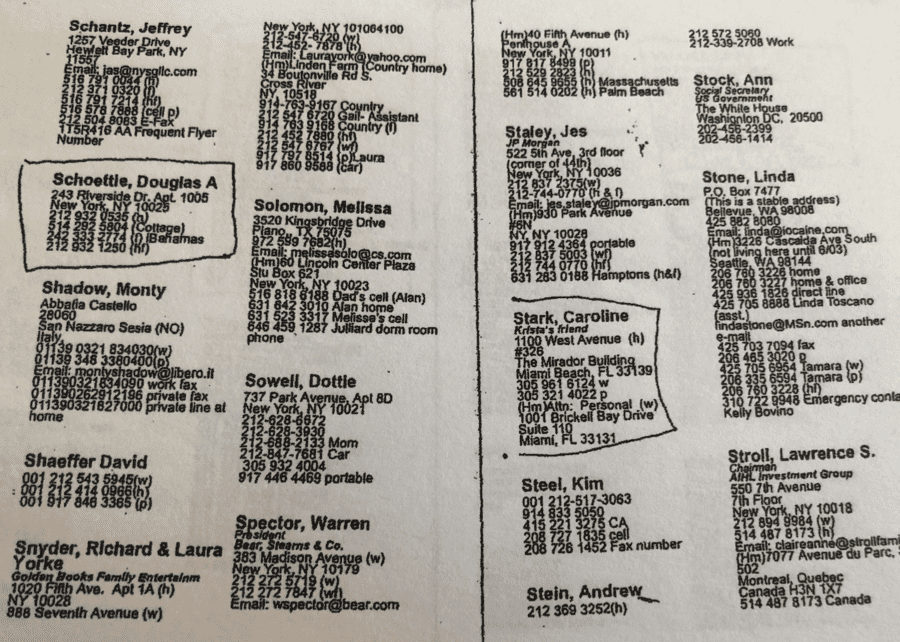 Schantz, Jeffrey
1257 Veeder Drive
Hewlett Bay Park, NY
11557
Email: jas@nysgllc.com
516 791 0044
212 371 0320 (f)
516 791 7214 (hf)
516 578 7888 (cell p)
212 504 8083 E-Fax
1T5R416 AA Frequent Flyer
Number
Schoettle, Douglas A
243 Riverside Dr. Apt. 1005
New York, NY 10025
212 932 0535 (h)
514 292 5804 (Cottage)
242 333 2774 (f) Bahamas
212 932 1250 (hf)
Shadow, Monty
Abbafia Castello
28060
San Nazzaro Sesia (NO)
Italy
01139 0321 834030(w)
01139 348 3380400(p)
Email: montyshadow@libero.it
011390321834090 work fax
011390262912196 private fax
011390321827000 private line at
home
Shaeffer David
001 212 543 5945(w)
001 212 414 0966(h)
001 917 846 3365 (p)
Snyder, Richard & Laura
Yorke
Golden Books Family Entertainm
1020 Fifth Ave. Apt 1A (h)
NY 10028
888 Seventh Avenue (w)
New York, NY 101064100
212-547-6720 (w)
212-452- 7878 (h)
Email: Laurayork@yahoo.com
(Hm)Linden Farm (Country home)
34 Boutonville Rd S.
Cross River
NY, 10518
914-763-9167 Country
212 547 6720 Gail- Assistant
914 763 9168 Country (f)
212 452 7880 (hf)
212 547 6767 (wf)
917 797 8514 (p)Laura
917 860 9588 (car)
Solomon, Melissa
3520 Kingsbridge Drive
Plano,, TX 75075
972 599 7682(h)
Email: melissasolo@cs.com
(Hm)60 Lincoln Center Plaza
Stu Box 621
New York, NY 10023
516 818 6188 Dad's cell (Alan)
631 642 3010 Alan home
631 523 3317 Melissa's cell
646 459 1287 Julliard dorm room
phone
Sowell, Dottie
737 Park Avenue, Apt 8D
New York, NY 10021
212-628-6672
212-628-3930
212-688-2133 Mom
212-847-7681 Car
305 932 4004
917 446 4469 portable
Spector, Warren
President
Bear, Stearns & Co.
383 Madison Avenue (w)
New York, NY 10179
212 272 5719 (w)
212 272 7847 (wf)
Email: wspector@bear.com
(Hm)40 Fifth Avenue (h)
Penthouse A
New York, NY 10011
917 817 8499 (p)
212 529 2823 (h)
508 645 9655 (h) Massachusetts
561 514 0202 (h) Palm Beach
Staley, Jes
JP Morgan
522 5th Ave, 3rd floor
(corner of 44th)
New York, NY 10036
212 837 2375(w)
212-744-0770 (h & f)
Email: jes.staley@jpmorgan.com
(Hm)930 Park Avenue
#6N
NY, NY 10028
917 912 4364 portable
212 837 5003 (wf)
212 744 0770 (hf)
631 283 0188 Hamptons (h&f)
Stark, Caroline
Krista's friend
1100 West Avenue (h)
#326
The Mirador Building
Miami Beach, FL 33139
305 961 6124 w
305 321 4022 p
(Hm)Attn: Personal (w)
1001 Brickell Bay Drive
Suite 110
Miami, FL 33131
Steel, Kim
001 212-517-3063
914 833 5050
415 221 3275 CA
208 727 1635 cell
208 726 1452 Fax number
Stein, Andrew
212 369 3252(h)
212 572 5060
212-339-2708 Work
Stock, Ann
Social Secretary
US Government
The White House
Washignton DC, 20500
202-456-2399
202-456-1414
Stone, Linda
P.O. Box 7477
(This is a stable address)
Bellevue, WA 98008
425 882 8080
Email: linda@iocaine.com
(Hm)3226 Cascadia Ave South
(not living here until 6/03)
Seattle, WA 98144
206 760 3226 home
206 760 3227 home & office
425 936 1826 direct line
425 705 8988 Linda Toscano
(asst.)
lindastone@MSn.com another
e-mail
425 703 7094 fax
206 465 3020 p
425 705 6954 Tamara (w)
206 335 6594 Tamara (p)
206 760 3228 (hf)
310 722 9948 Emergency conta
Kelly Bovino
Stroll, Lawrence S.
Chairman
AIHL Investment Group
550 7th Avenue
7th Floor
New York, NY 10018
212 894 9984 (w)
514 487 8173 (h)
Email: claireanne@strollfami
(Hm)7077 Avenue du Parc,
502
Montreal, Quebec
Canada H3N 1X7
514 487 8173 Canada